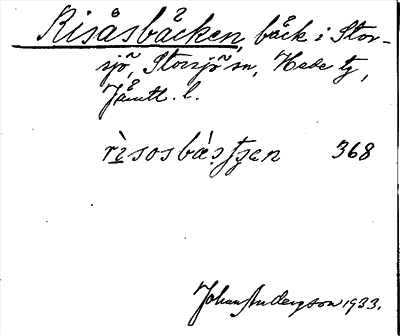 Risåsbäcken, bäck i Stor-
sjö, Storsjö sn, Hede tg,
Jämtl. l.
rìsosbáçtʃen 368
Johan Anderson 1933.